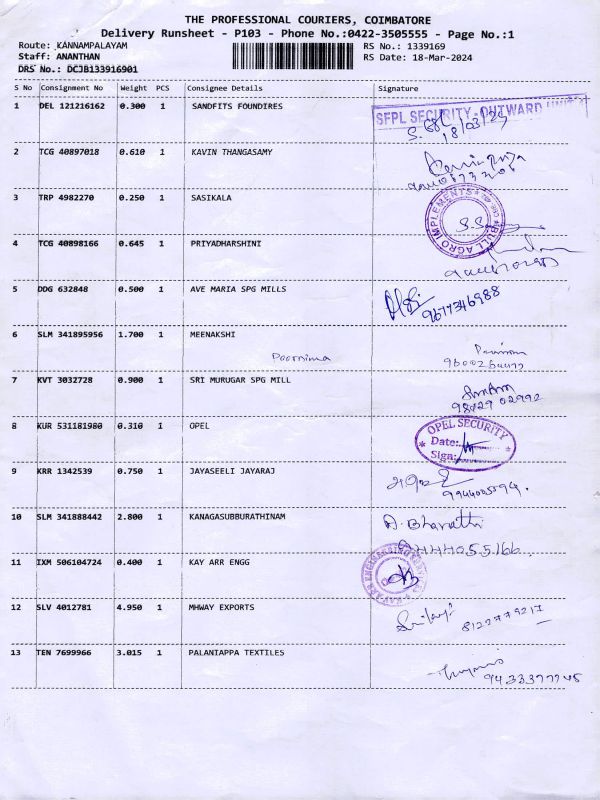 THE PROFESSIONAL COURIERS, COIMBATORE
Delivery Runsheet - P103 - Phone No.:0422-3505555 - Page No.:1
Route: KANNAMPALAYAM
RS No.: 1339169
Staff: ANANTHAN
RS Date: 18-Mar-2024
DRS No.: DCJB133916901
S No Consignment No Weight PCS Consignee Details Signature
1 DEL 121216162 0.300 1 SANDFITS FOUNDIRES
SFPL SECURITY - OUTWARD UNIT
18/03/24
2 TCG 40897018 0.610 1 KAVIN THANGASAMY
3 TRP 4982270 0.250 1 SASIKALA
BULL AGRO IMPLEMENTS
4 TCG 40898166 0.645 1 PRIYADHARSHINI
5 DDG 632848 0.500 1 AVE MARIA SPG MILLS
9677346988
6 SLM 341895956 1.700 1 MEENAKSHI
Poornima
7 KVT 3032728 0.900 1 SRI MURUGAR SPG MILL
98429 02992
8 KUR 531181980 0.310 1 OPEL
OPEL SECURITY
Date:
Sign:
9 KRR 1342539 0.750 1 JAYASEELI JAYARAJ
10 SLM 341888442 2.800 1 KANAGASUBBURATHINAM
A. Bharathi
11 IXM 506104724 0.400 1 KAY ARR ENGG
KAY ARR ENGINEERING SERVICES
12 SLV 4012781 4.950 1 MHWAY EXPORTS
8122779217
13 TEN 7699966 3.015 1 PALANIAPPA TEXTILES